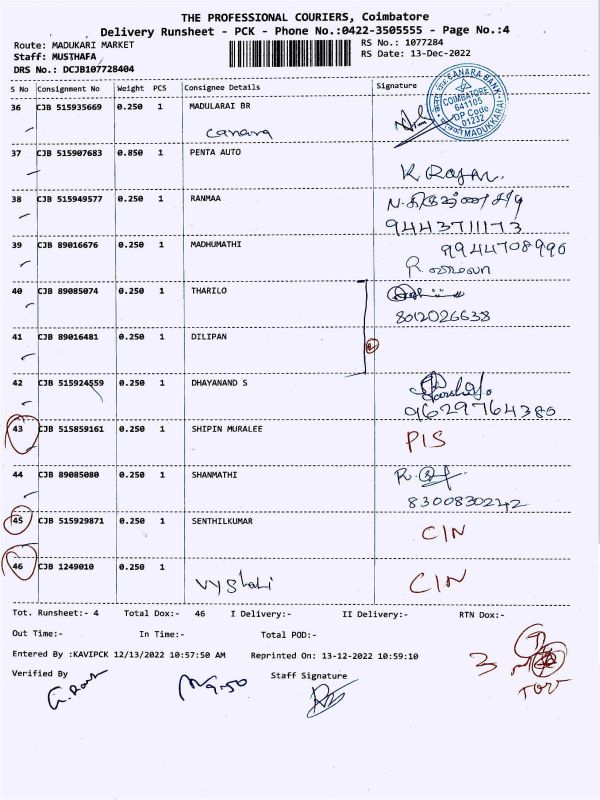 THE PROFESSIONAL COURIERS, Coimbatore
Delivery Runsheet - PCK - Phone No.:0422-3505555 - Page No.:4
Route: MADUKARI MARKET
RS No.: 1077284
Staff: MUSTHAFA
RS Date: 13-Dec-2022
DRS No.: DCJB107728404
S No Consignment No Weight PCS Consignee Details Signature
CANARA BANK
COIMBATORE
641105
DP Code
01232
MADUKKARAI
36 CJB 515935669 0.250 1 MADULARAI BR
Canara
37 CJB 515907683 0.850 1 PENTA AUTO
K. Rajan.
38 CJB 515949577 0.250 1 RANMAA
9443711173
39 CJB 89016676 0.250 1 MADHUMATHI
9944708990
40 CJB 89085074 0.250 1 THARILO
8012026638
41 CJB 89016481 0.250 1 DILIPAN
42 CJB 515924559 0.250 1 DHAYANAND S
9629764380
43 CJB 515859161 0.250 1 SHIPIN MURALEE
PIS
44 CJB 89085080 0.250 1 SHANMATHI
8300830242
45 CJB 515929871 0.250 1 SENTHILKUMAR
CIN
46 CJB 1249010 0.250 1
Vyshali
CIN
Tot. Runsheet:- 4 Total Dox:- 46 I Delivery:- II Delivery:- RTN Dox:-
Out Time:- In Time:- Total POD:-
Entered By :KAVIPCK 12/13/2022 10:57:50 AM Reprinted On: 13-12-2022 10:59:10
3
Verified By Staff Signature